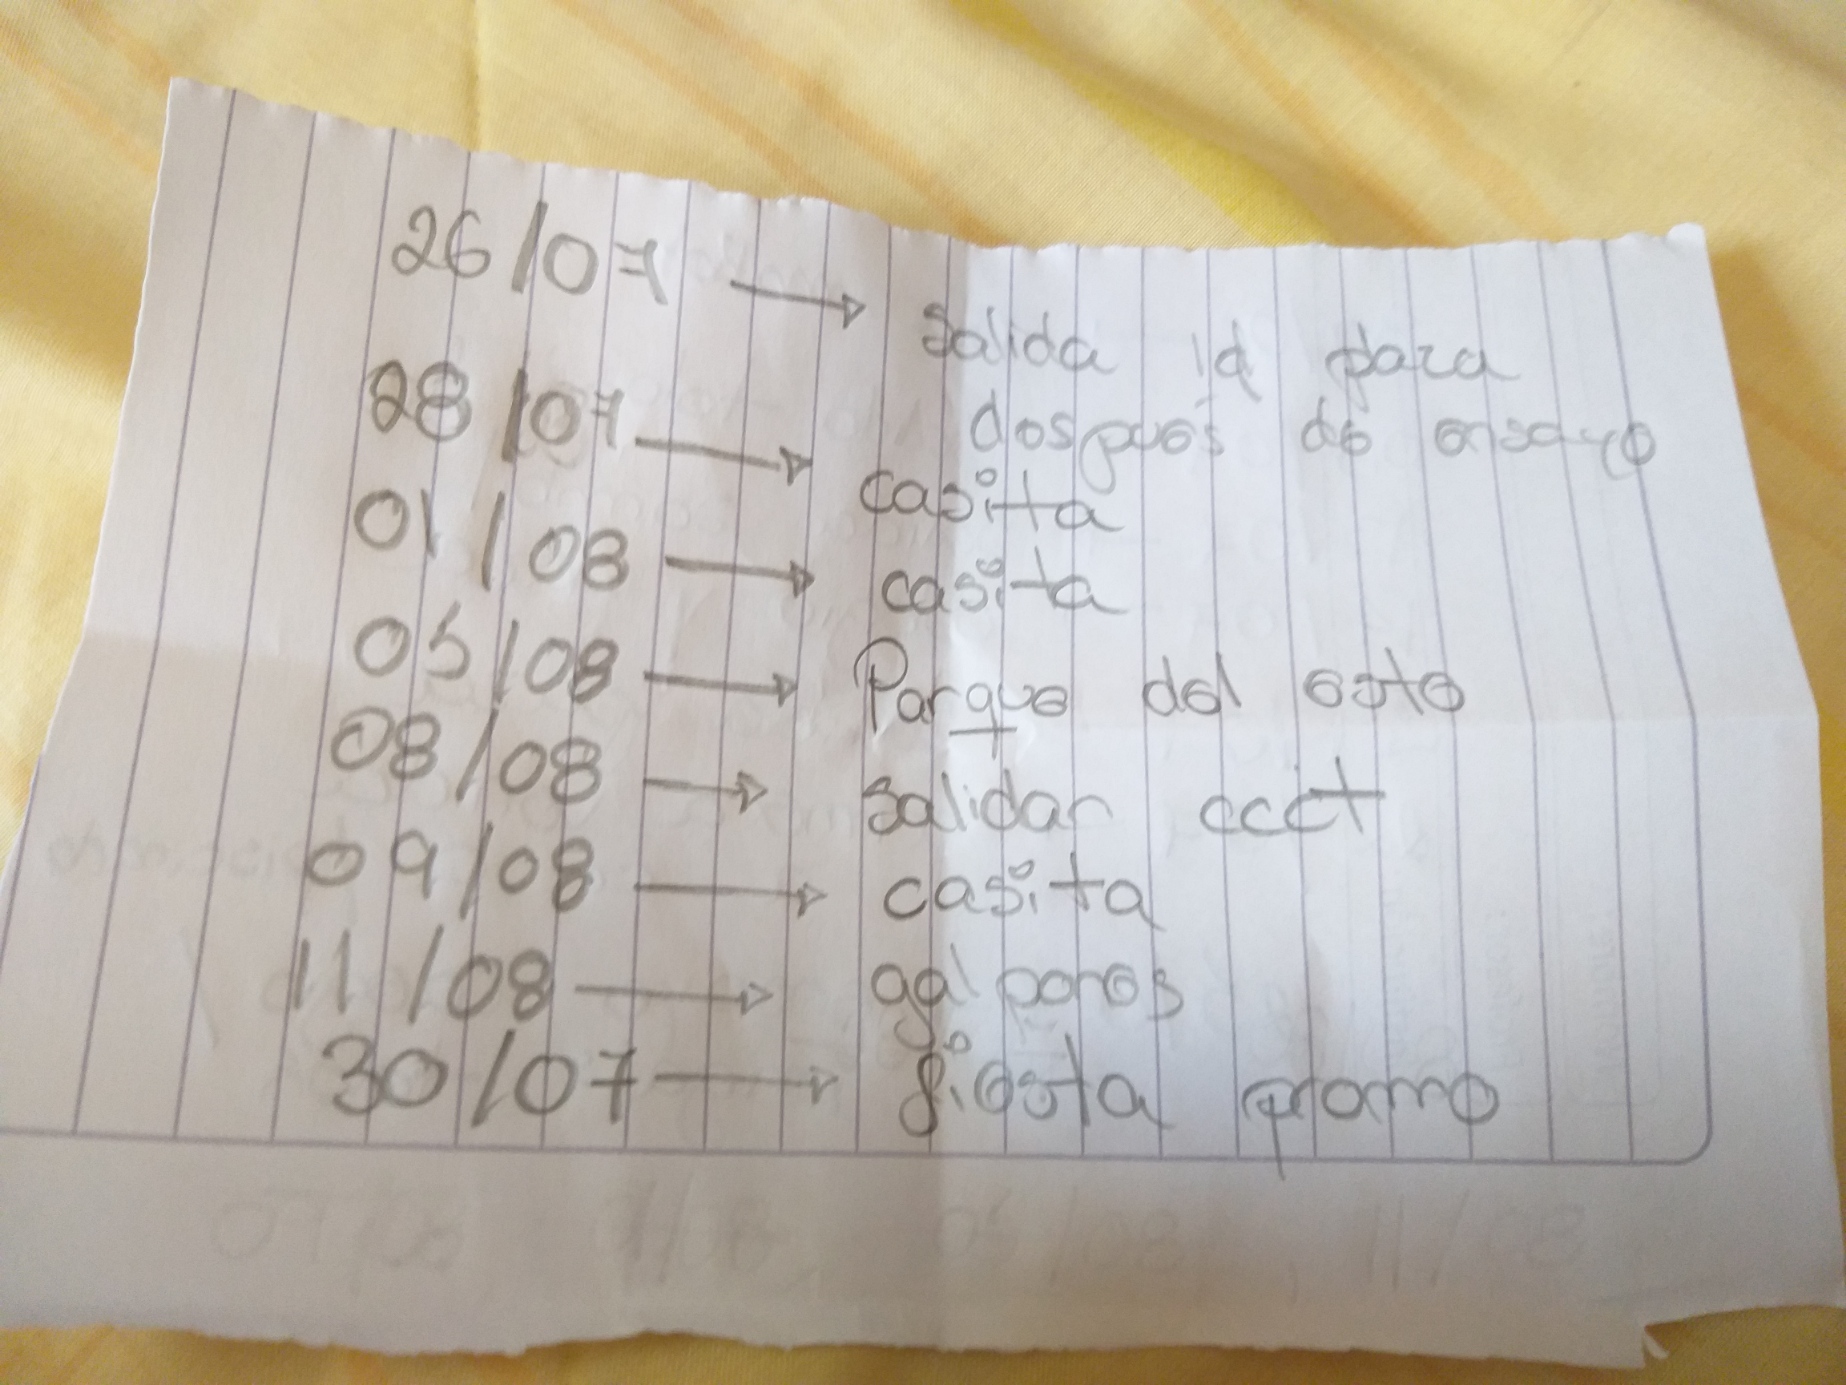 26/07 → Salida id para
después de ensayo
28/07 → casita
01/08 → casita
05/08 → Parque del este
08/08 → Salidan ccct
09/08 → casita
11/08 → galpones
30/07 → fiesta promo